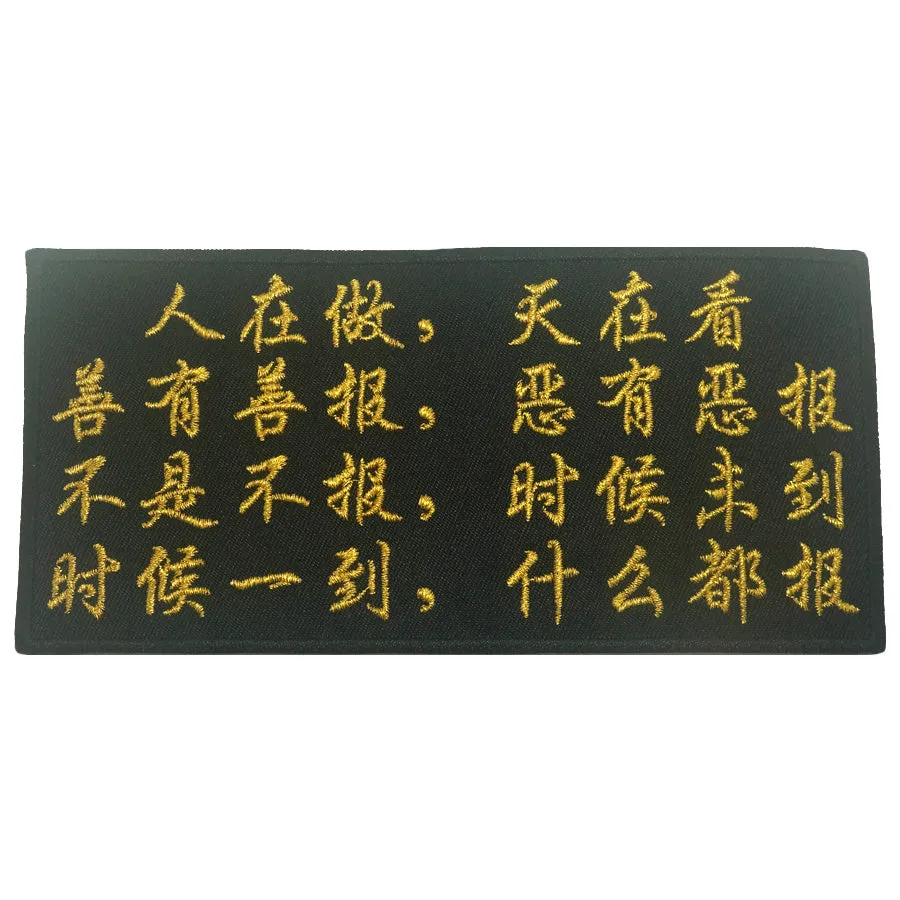 人在做，天在看
善有善报，恶有恶报
不是不报，时候未到
时候一到，什么都报